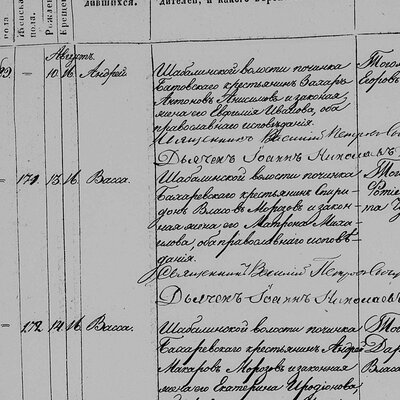 рода
Женска
пола.
Рожден
Крещен
лившихся.
Августъ.
10. 16. Андрей
Шабалинской волости починка
Батовскаго крестьянинъ Захаръ
Антоновъ Анисимовъ и законая
жена его Евгенія Иванова, оба
православнаго исповѣданія.
Священникъ Василій
Дьячекъ Іоаннъ Николаевъ
171. 13. 16. Васса.
Шабалинской волости починка
Бахаревскаго крестьянинъ Спири-
донъ Власовъ Морозовъ и закон-
ная жена его Матрона Миха-
илова, оба православнаго исповѣ-
данія.
Священникъ Василій
Дьячекъ Іоаннъ Николаевъ
172. 14. 16. Васса.
Шабалинской волости починка
Бахаревскаго крестьянинъ Андрей
Макаровъ Морозовъ и законная
жена его Екатерина Иродіонова,